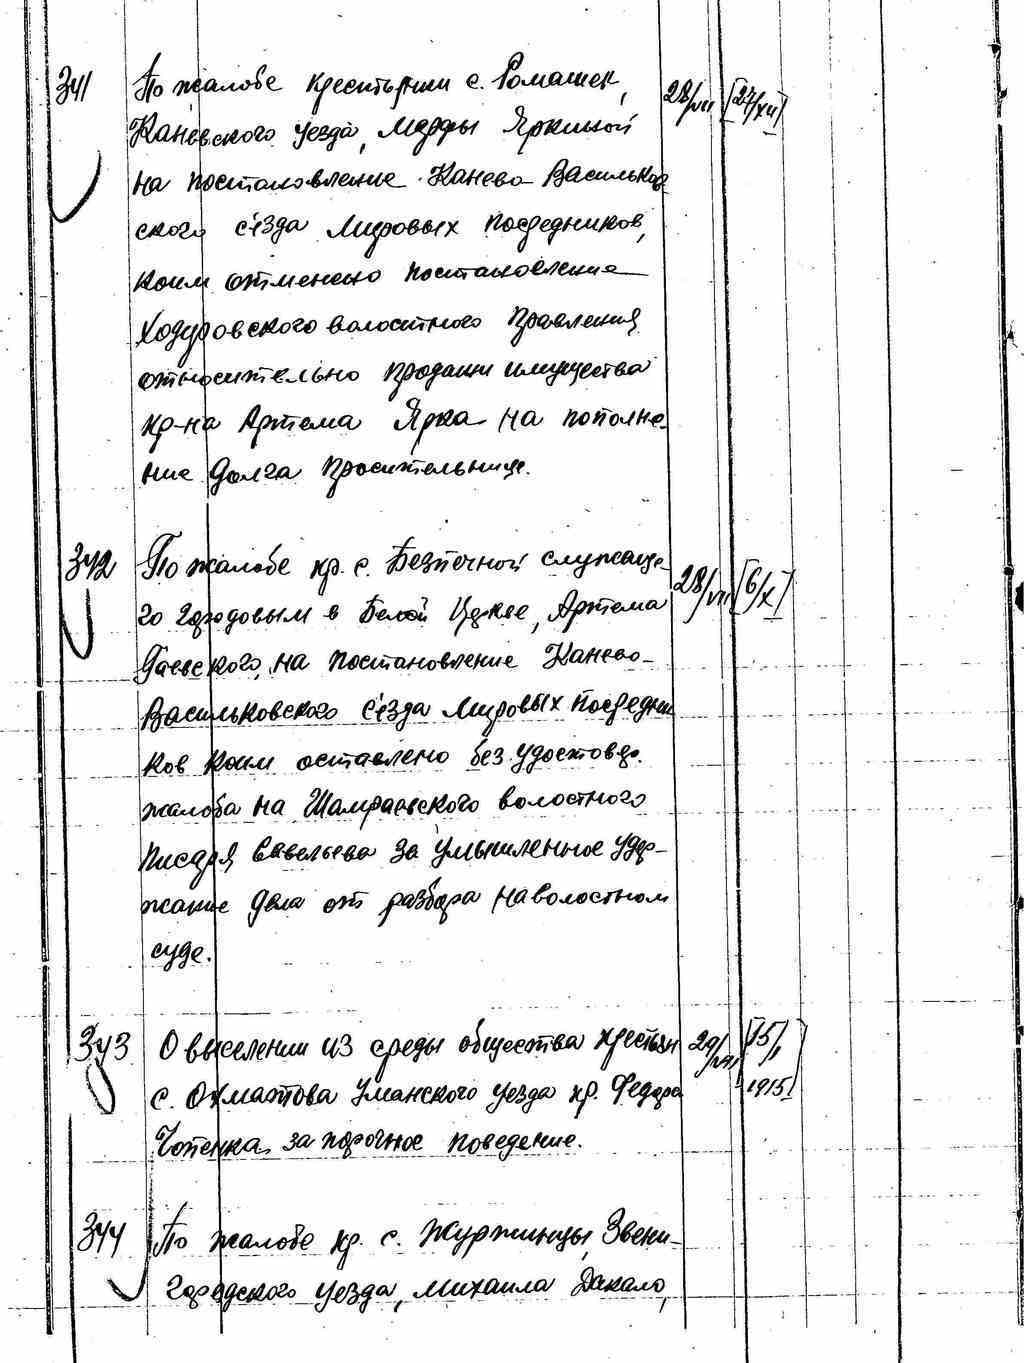 341 По жалобе крестьянки с. Ромашек, 28/VII [27/XII]
Каневского уезда, Марфы Яркиной
на постановление Канево-Васильков-
ского съезда Мировых посредников,
коим отменено постановление
Ходоровского волостного Правления
относительно продажи имущества
кр-на Артема Ярка на пополне-
ние долга просительнице.
342 По жалобе кр. с. Безпечной служаще- 28/VII [6/X]
го городовым в Белой Церкве, Артема
Гаевского, на постановление Канево-
Васильковского съезда Мировых посредни
ков коим оставлено без удостовер.
жалоба на Шамраевского волостного
писаря Савельева за умышленное удер-
жание дела от разбора на волостном
суде.
343 О выселении из среды общества крестьян 29/VII [15/I
с. Охматова Уманского уезда кр. Федора 1915]
Чопенка за порочное поведение.
344 По жалобе кр. с. Журжинцы, Звени-
городского уезда, Михаила Дакало,